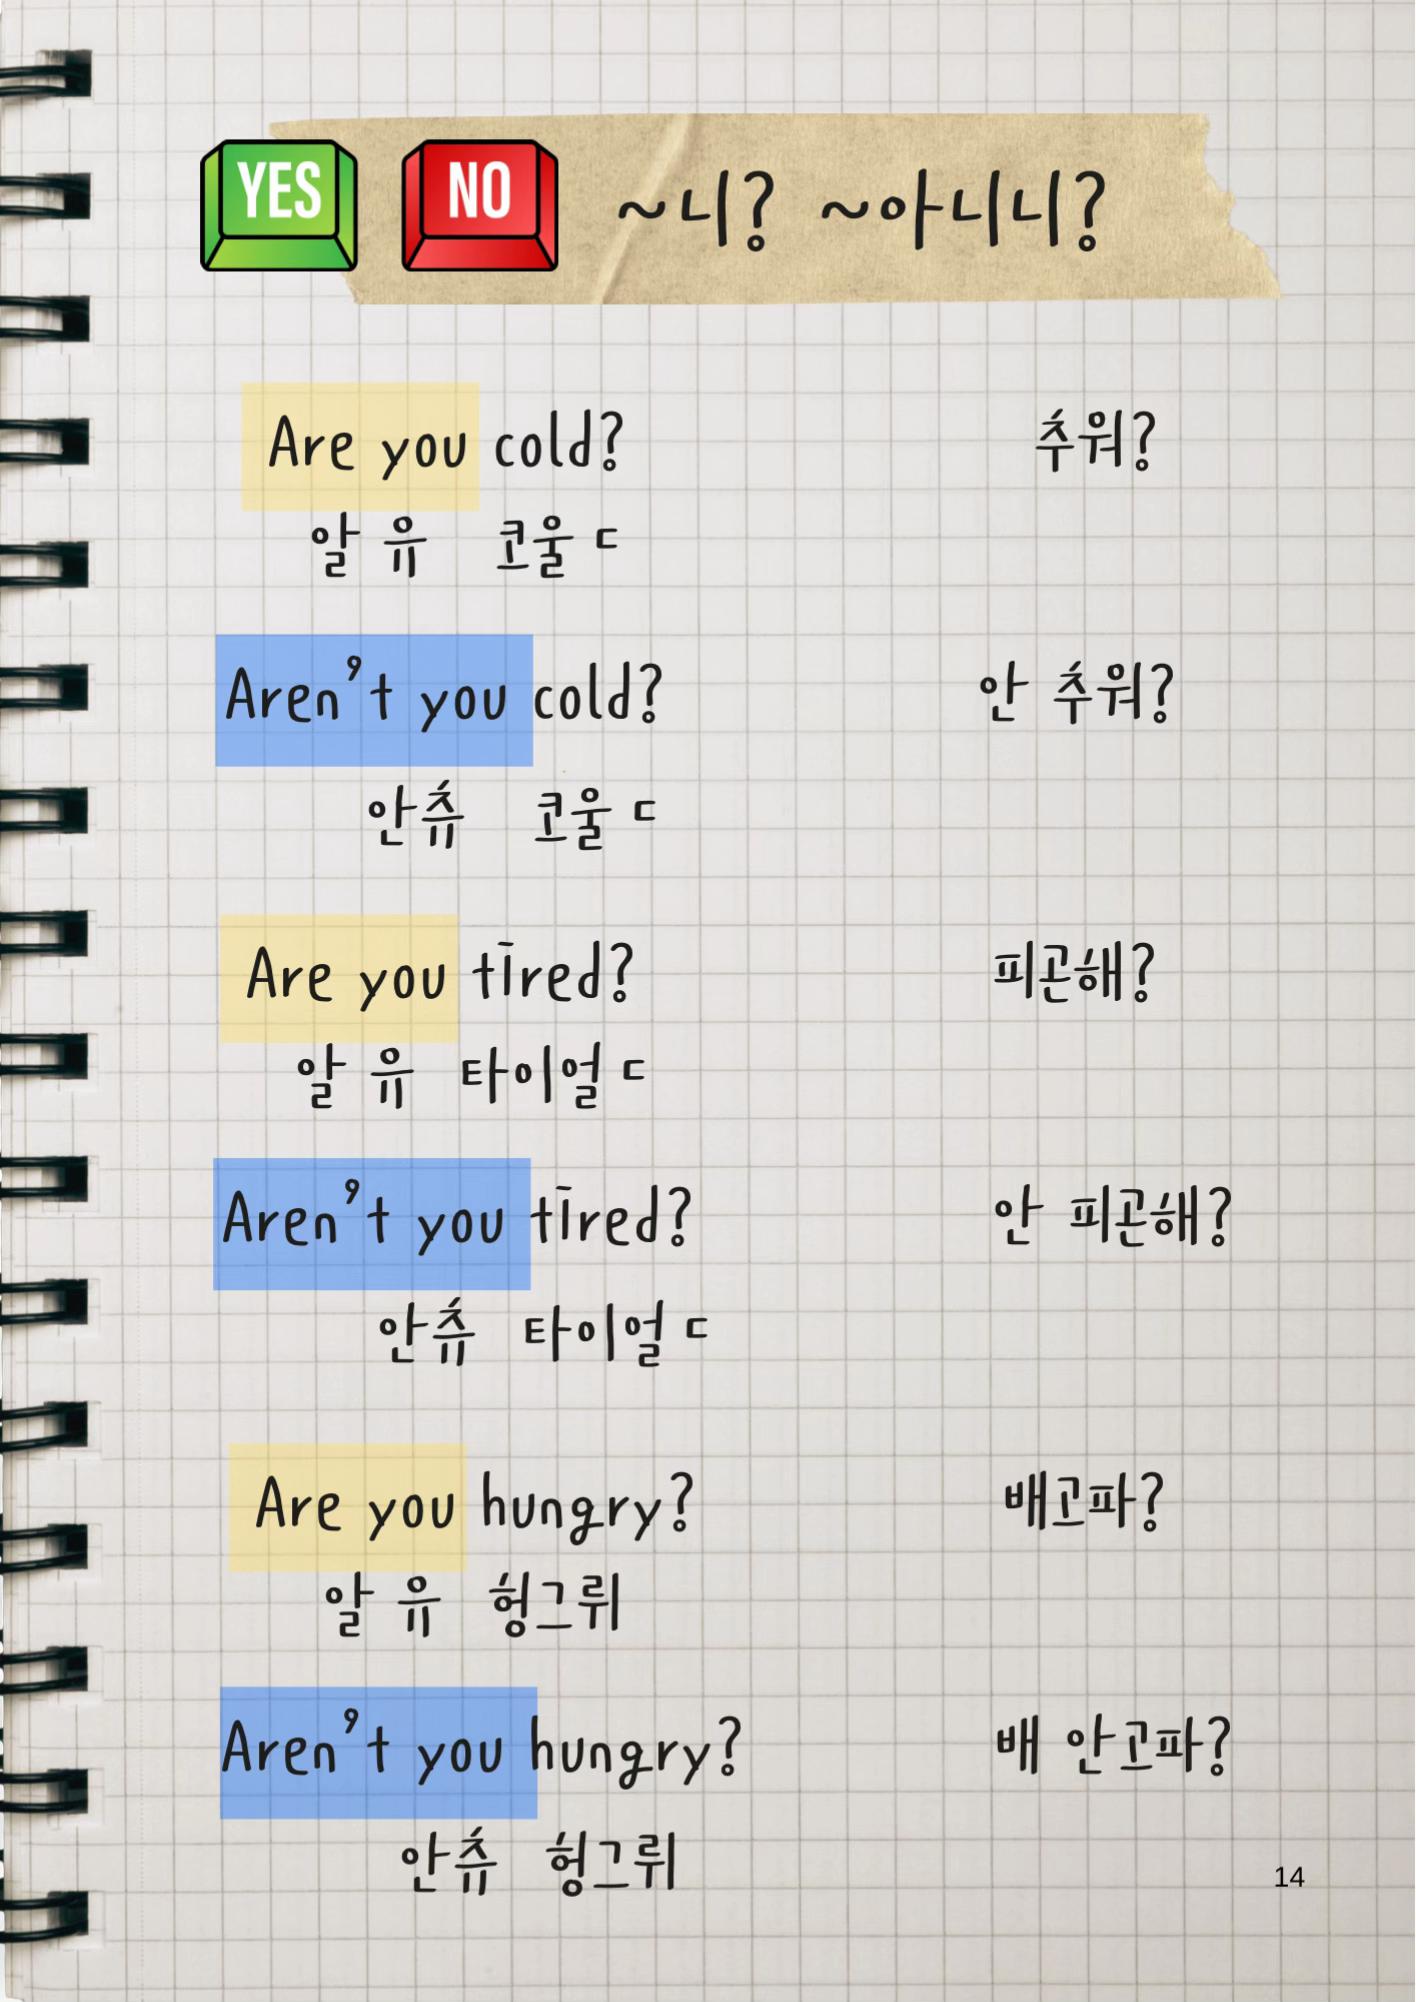 YES NO ~니? ~아니니?
Are you cold? 추워?
알 유 코울 ㄷ
Aren't you cold? 안 추워?
안츄 코울 ㄷ
Are you tired? 피곤해?
알 유 타이얼 ㄷ
Aren't you tired? 안 피곤해?
안츄 타이얼 ㄷ
Are you hungry? 배고파?
알 유 헝그뤼
Aren't you hungry? 배 안고파?
안츄 헝그뤼
14